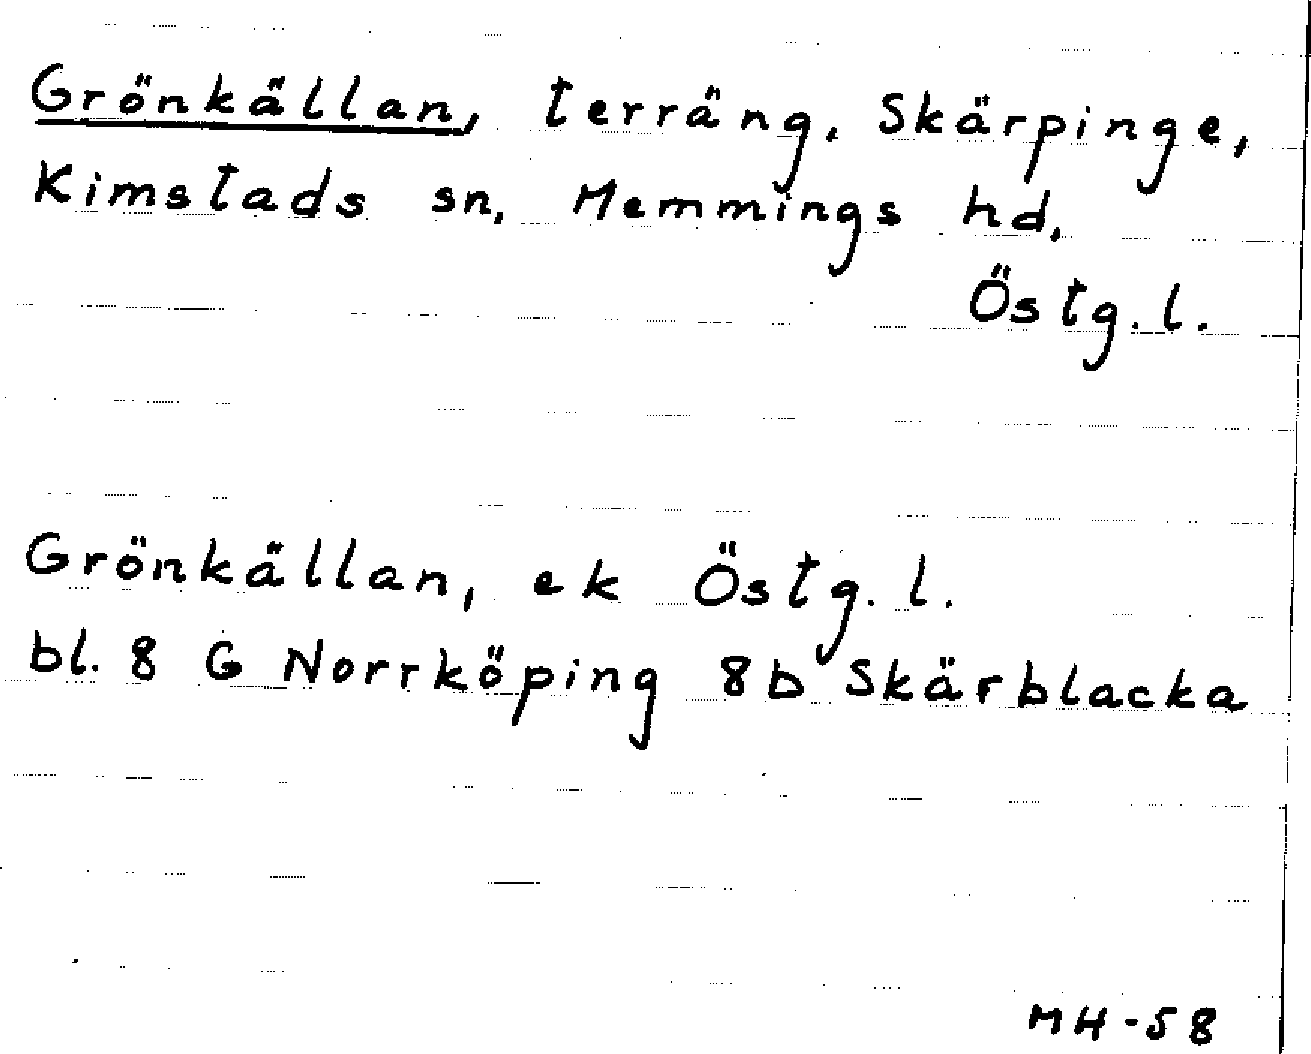 Grönkällan, terräng, Skärpinge,
Kimstads sn, Memmings hd,
Östg. l.
Grönkällan, ek Östg. l.
bl. 8 G Norrköping 8b Skärblacka
MH-58